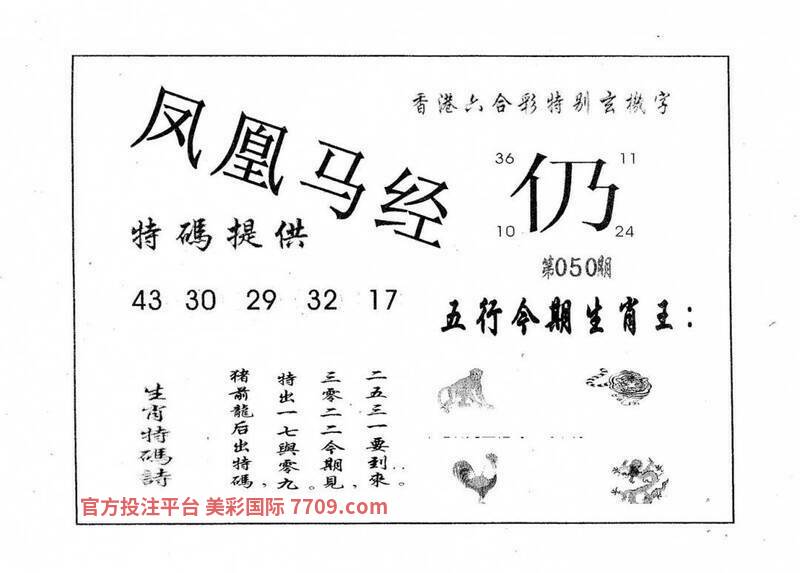 凤凰马经
香港六合彩特别玄機字
36 11
仍
10 24
第050期
特碼提供
43 30 29 32 17
五行今期生肖王：
生肖特碼詩
二五三一要到來。
三零二二今期見，
特出一七與零九。
猪前龍后出特碼，
官方投注平台 美彩国际 7709.com